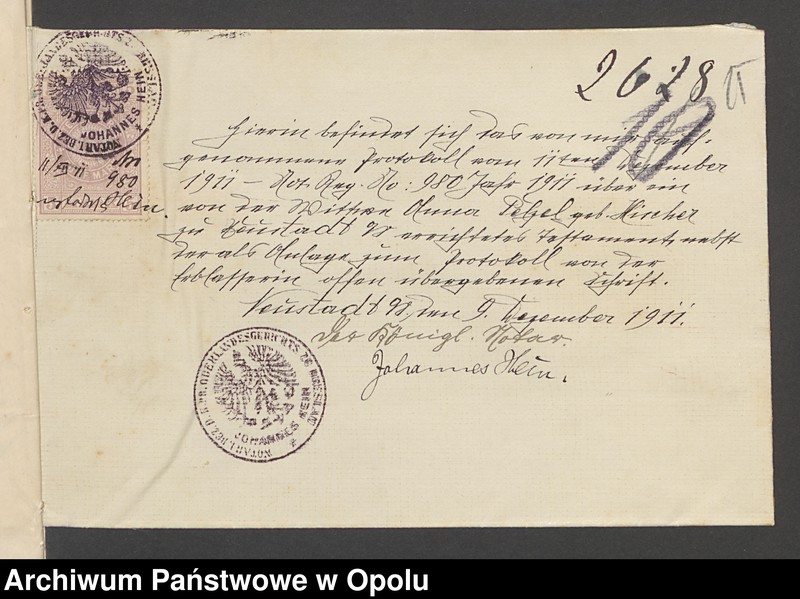 NOTAR I. BEZ. D. K. PR. OBERLANDESGERICHTS ZU BRESLAU
JOHANNES HEIN
11/XII 11
No
980
Hein.
2628
Hierin befindet sich das von mir auf-
genommene Protokoll vom 11ten Dezember
1911 – Not. Reg. No: 980 Jahr 1911 über ein
von der Wittwe Anna Petzel geb. Kircher
zu Neustadt O/S errichtetes Testament, nebst
der als Anlage zum Protokoll von der
Erblasserin offen übergebenen Schrift.
Neustadt O/S, den Dezember 1911.
Der Königl. Notar.
Johannes Hein.
NOTAR I. BEZ. D. K. PR. OBERLANDESGERICHTS ZU BRESLAU
JOHANNES HEIN
Archiwum Państwowe w Opolu